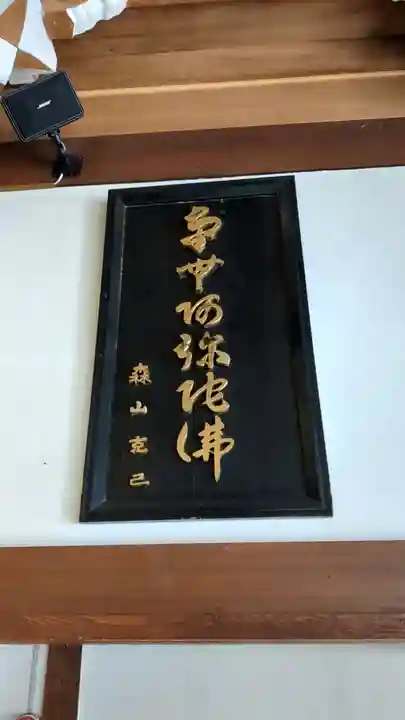 南無阿弥陀佛
森山克己
BOSE